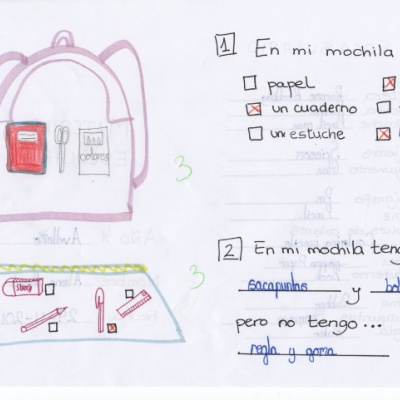 1 En mi mochila
papel
un cuaderno
un estuche
colores
3
2 En mi mochila teng
sacapuntas y bol
3
pero no tengo...
regla y goma